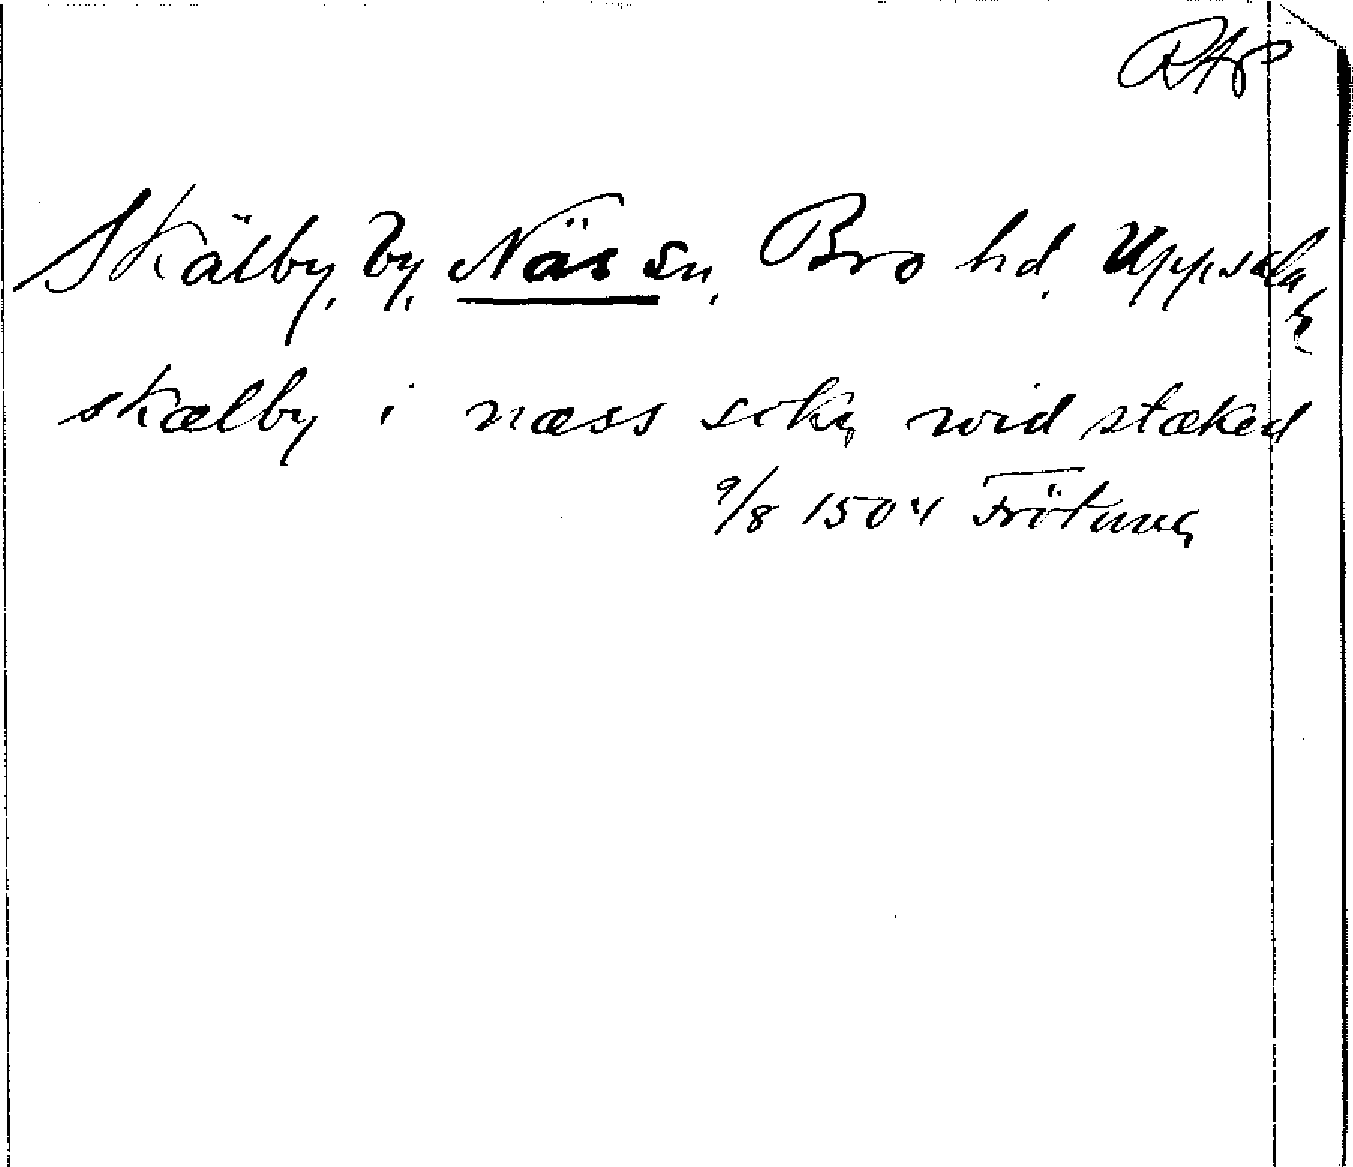 RAP
Skälby, by, Näs sn, Bro hd, Uppsala
skælby i næss sokn wid stæked
9/8 1504 Frötuna